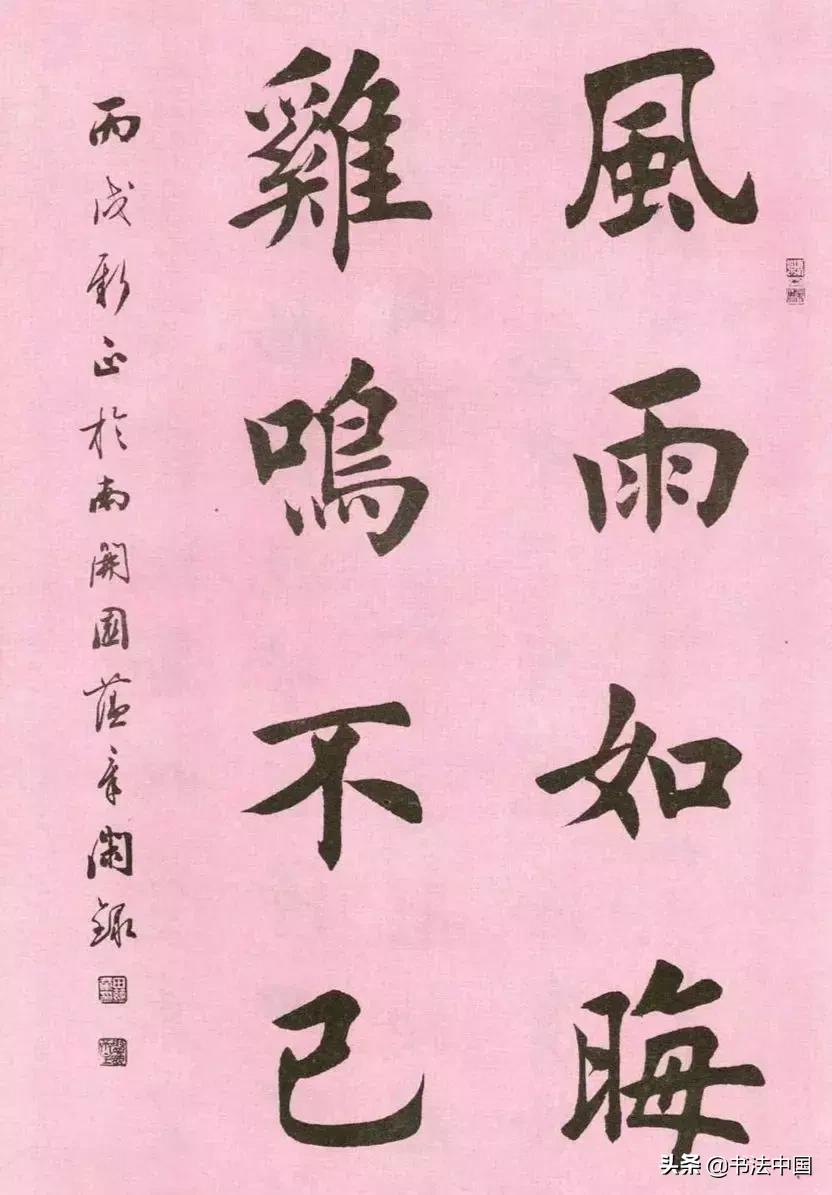 風雨如晦
雞鳴不已
丙戌新正於南開園蘊章錄
头条 @书法中国